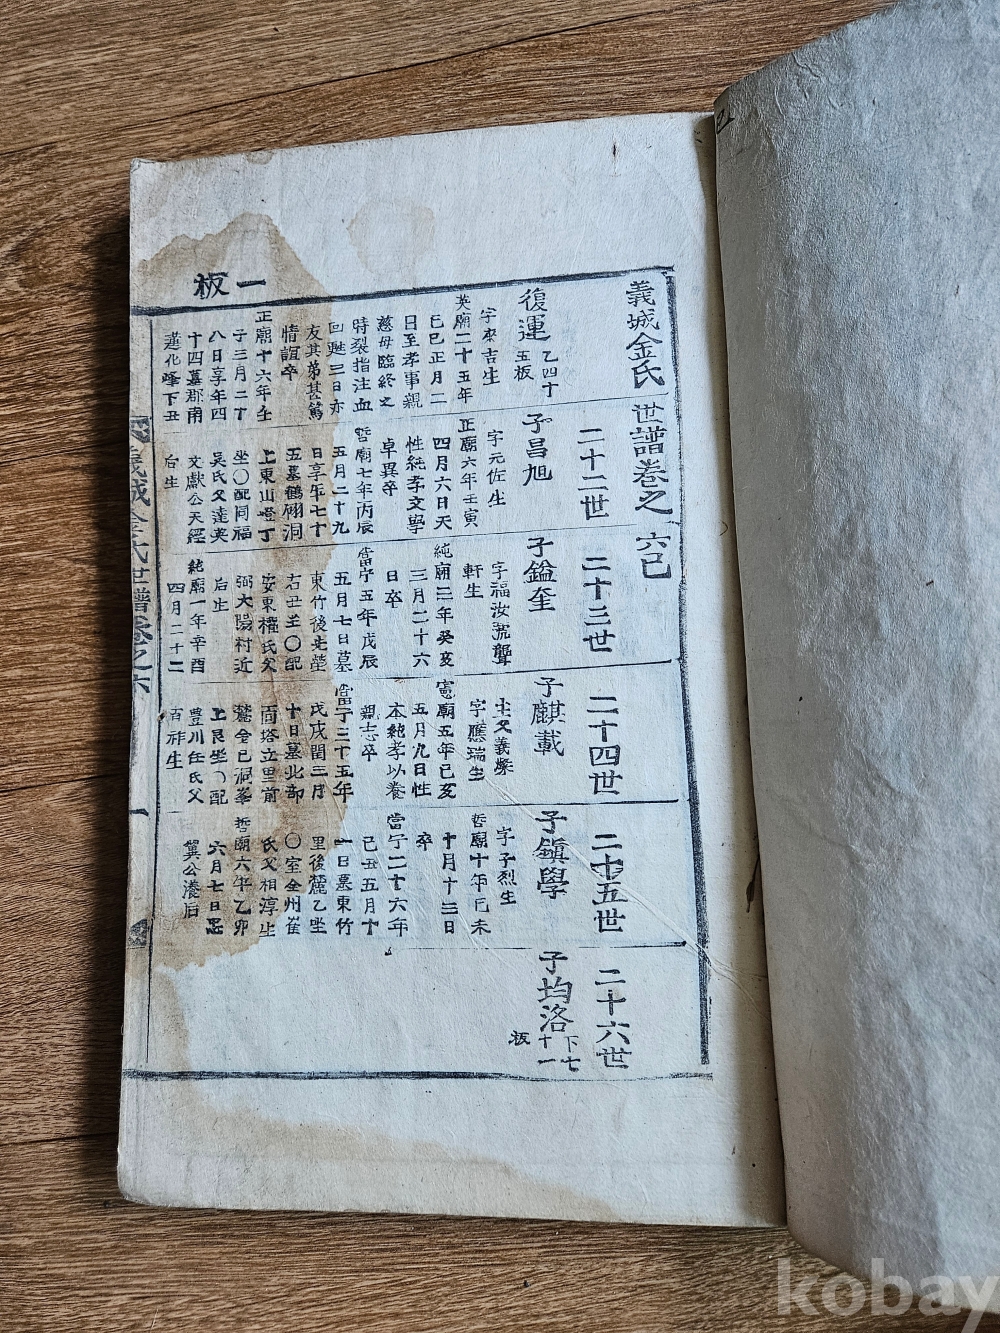 一板
義城金氏世譜卷之六己
二十二世
二十三世
二十四世
二十五世
二十六世
復運
乙四十
五板
字來吉生
英廟二十五年
己巳正月二
日至孝事親
慈母臨終之
時裂指注血
回甦三日亦
友其弟甚篤
情誼卒
正廟十六年壬
子三月二十
八日享年四
十四墓郡南
蓮化峰下丑
子昌旭
字元佐生
正廟六年壬寅
四月六日天
性純孝文學
卓異卒
哲廟七年丙辰
五月二十九
日享年七十
五墓鶴翎洞
上東山嶝丁
坐〇配同福
吳氏父達英
文獻公天經
后生
子鎰奎
字福汝號聾
軒生
純廟三年癸亥
三月二十六
日卒
當宁五年戊辰
五月七日墓
東竹後先塋
右丑坐〇配
安東權氏父
弼大陽村近
后生
純廟一年辛酉
四月二十二
子麒載
生父義燦
字應瑞生
憲廟五年己亥
五月九日性
本純孝以養
親志卒
當宁三十五年
戊戌閏三月
十日墓北部
両塔立里前
鶯谷巳洞峯
上艮坐〇配
豊川任氏父
百祚生
子鎭學
字子烈生
哲廟十年己未
十月十三日
卒
當宁二十六年
己丑五月十
一日墓東竹
里後麓乙坐
〇室全州崔
氏父相淳生
哲廟六年乙卯
六月七日忌
翼公瀁后
子均洛
下七
十一
板
義城金氏世譜卷之六
一
kobay